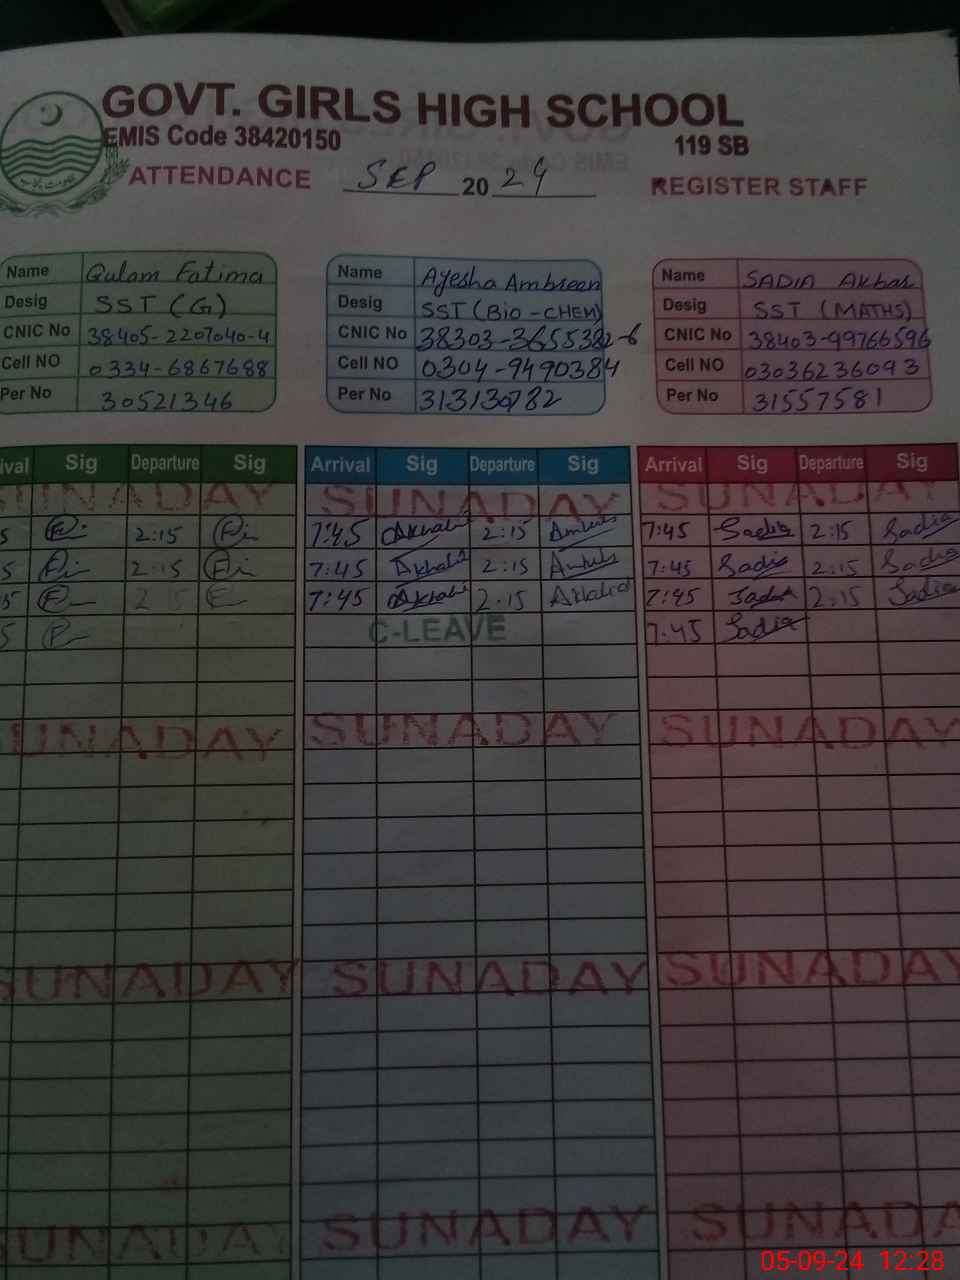 GOVT. GIRLS HIGH SCHOOL
EMIS Code 38420150 119 SB
ATTENDANCE SEP 2024 REGISTER STAFF
Name Gulam Fatima
Desig SST (G)
CNIC No 38405-2207040-4
Cell NO 0334-6867688
Per No 30521346
Name Ayesha Ambreen
Desig SST (Bio-CHEM)
CNIC No 38303-3655382-6
Cell NO 0304-9490384
Per No 313130782
Name SADIA Akbar
Desig SST (MATHS)
CNIC No 38403-99766596
Cell NO 03036236093
Per No 31557581
ival Sig Departure Sig Arrival Sig Departure Sig Arrival Sig Departure Sig
SUNADAY SUNADAY SUNADAY
5 2:15 7:45 2:15 7:45 Sadia 2:15 Sadia
5 2:15 7:45 2:15 7:45 Sadia 2:15 Sadia
5 2 15 7:45 2:15 7:45 Sadia 2:15 Sadia
5 C-LEAVE 7:45 Sadia
UNADAY SUNADAY SUNADAY
SUNADAY SUNADAY SUNADAY
SUNADAY SUNADAY SUNADA
05-09-24 12:28